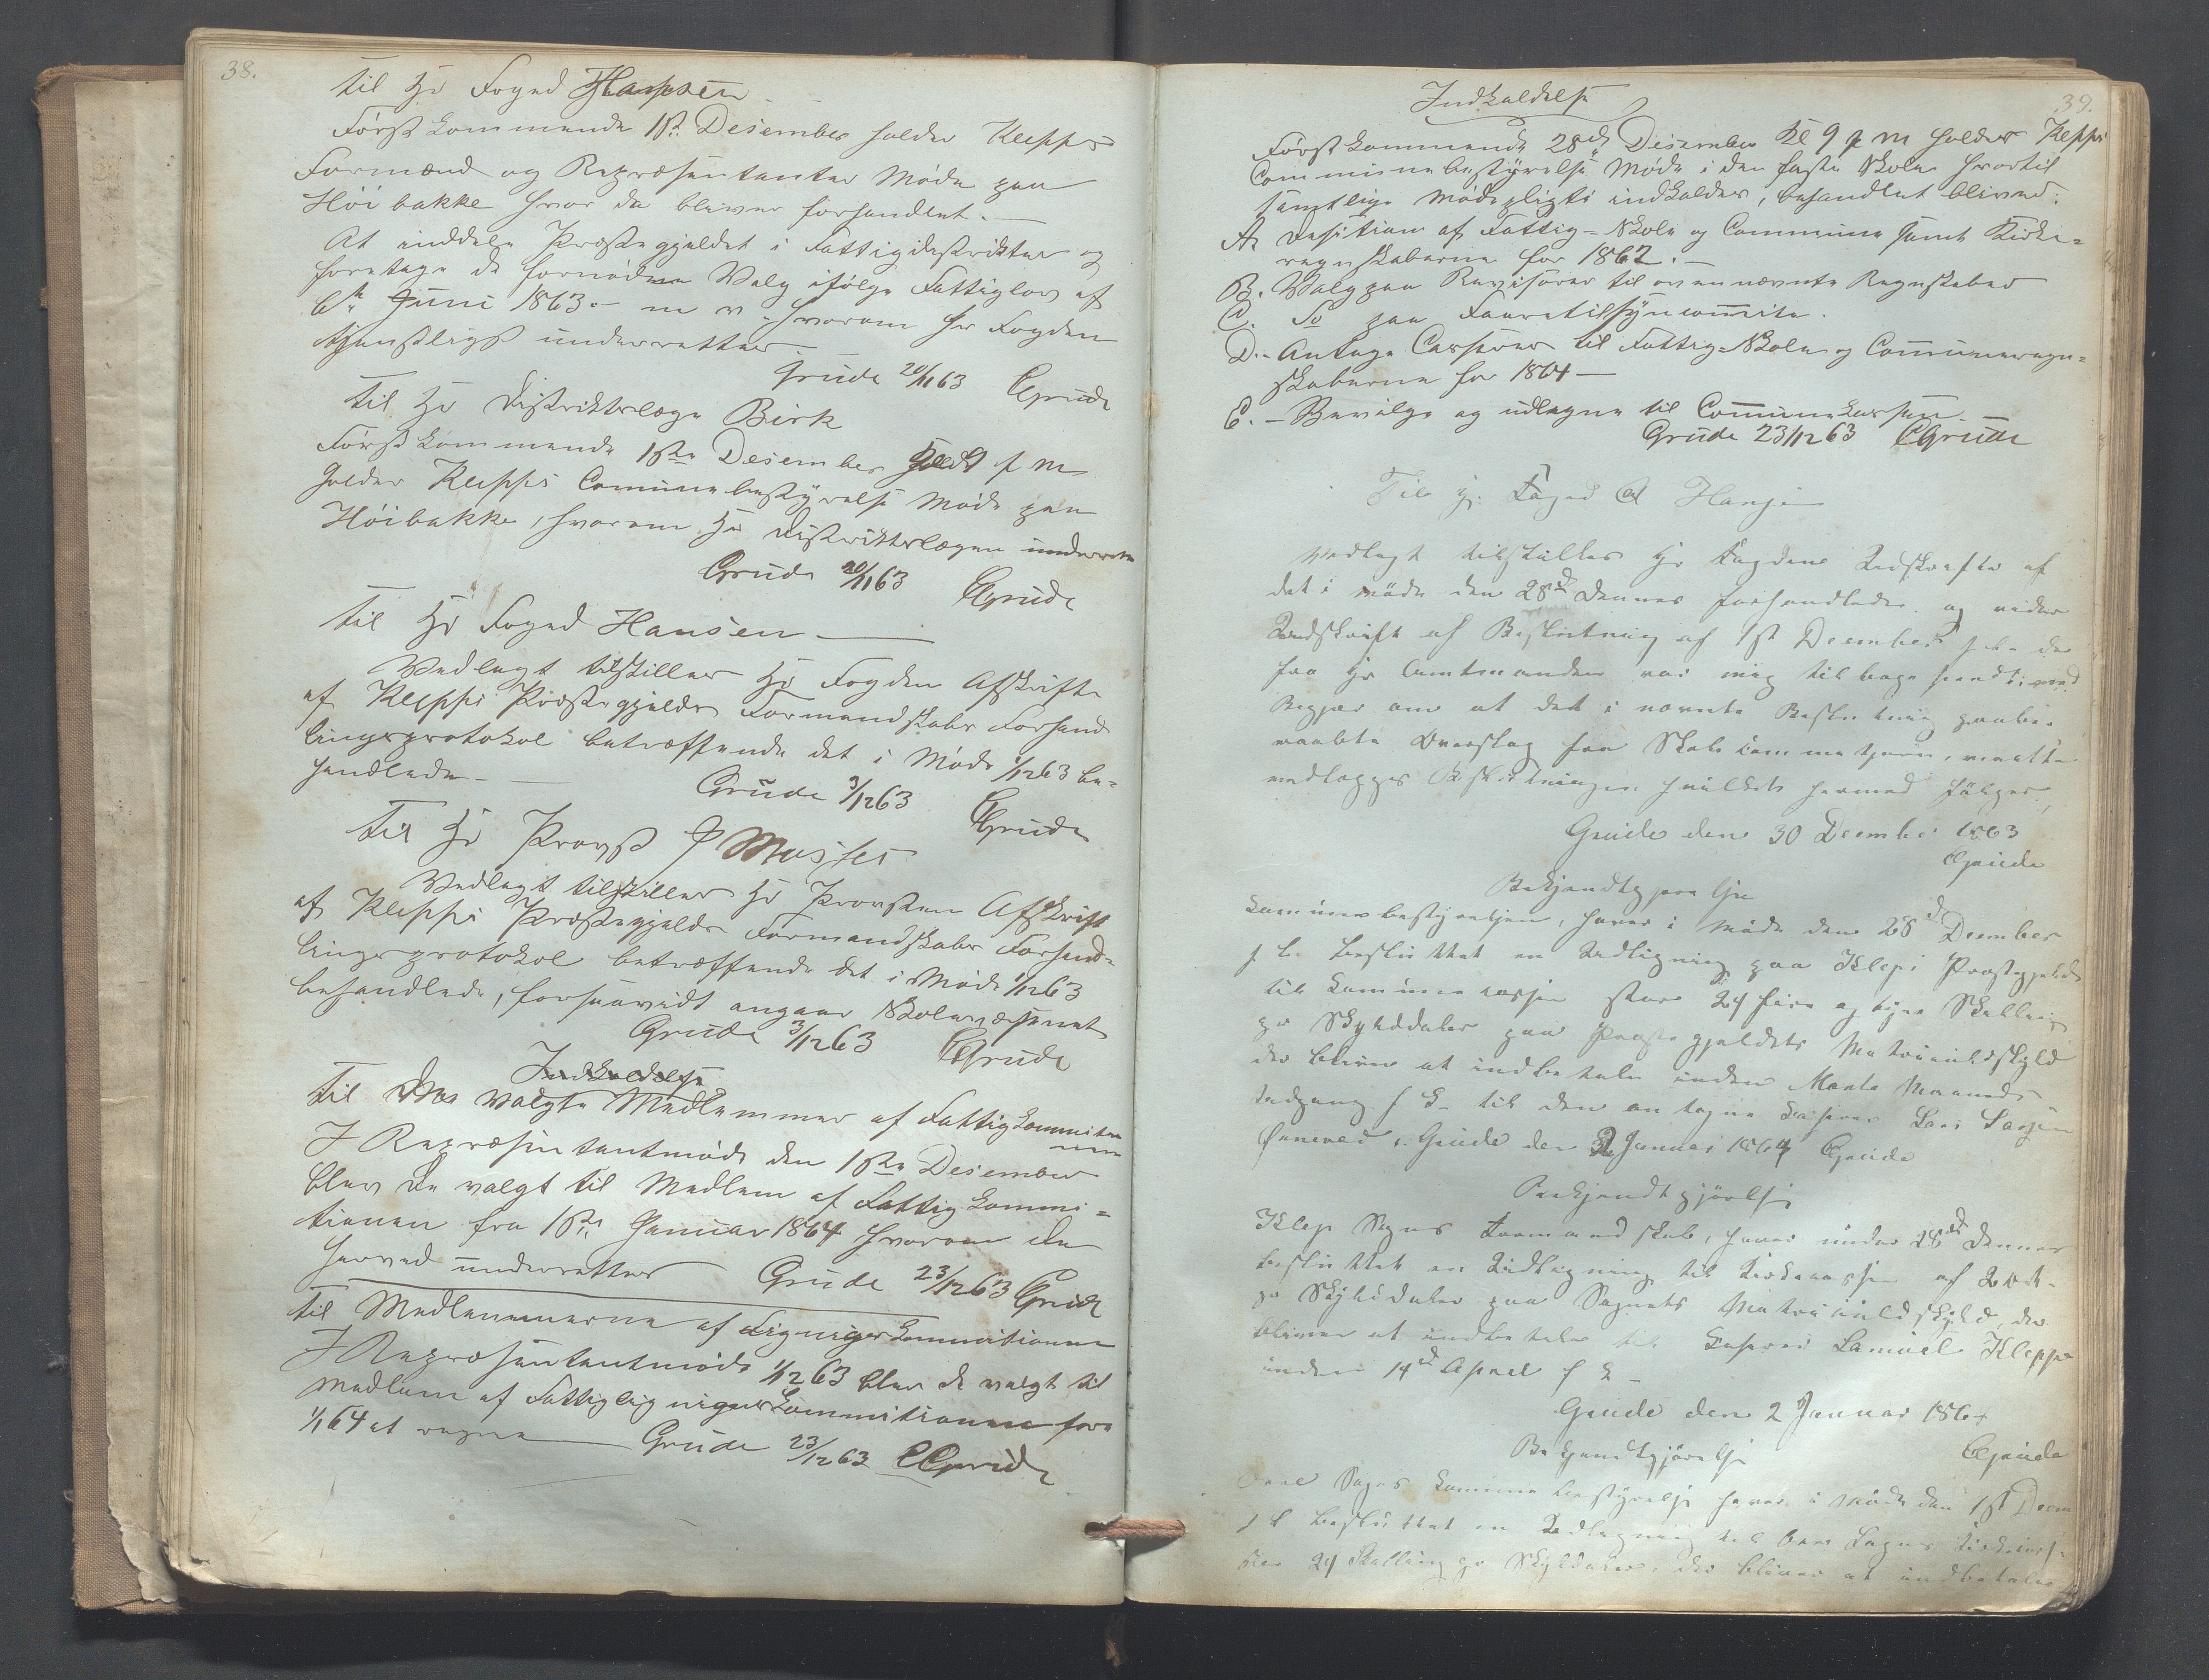 38.
Til Hr Foged Hansen
Førstkommende 1ste Desember holder Klepps
Formænd og Repræsentanter Møde paa
Höibakke hvor da bliver forhandlet. —
At inddele Præstegjeldet i Fattigdistrikter og
foretage de fornødne Valg ifølge Fattiglov af
6te Juni 1863 — m v. hvorom Hr Fogden
tjenstligst underrettes
Grude 20/11 63 EGrude
Til Hr Distriktslæge Birk
Førstkommende 1ste Desember f m
holder Klepps Communebestyrelse Møde paa
Höibakke, hvorom Hr Distriktslægen underrettes
Grude 20/11 63 EGrude
Til Hr Foged Hansen —
Vedlagt tilstilles Hr Fogden Afskrift
af Klepps Præstegjelds Formandskabs Forhand
lingsprotokol betræffende det i Møde 1/12 63 be-
handlede — Grude 3/12 63 EGrude
Til Hr Provst
Vedlagt tilstilles Hr Provsten Afskrift
af Klepps Præstegjelds Formandskabs Forhand-
lingsprotokol betræffende det i Møde 1/12 63
behandlede, forsaavidt angaar Skolevæsenet
Grude 3/12 63 EGrude
Indkaldelse
Til valgte Medlemmer af Fattigkommi
I Repræsentantmøde den 1ste Desember
blev De valgt til Medlem af Fattigkommi=
tionen fra 1ste Januar 1864 hvorom De
herved underrettes Grude 23/12 63 EGrude
Til Medlemmerne af Ligningskommitionen
I Repræsentantmøde 1/12 63 blev De valgt til
Medlem af Fattigligningskommitionen fra
1/1 64 at regne — Grude 23/12 63 EGrude
39.
Indkaldelse
Førstkommende 28de Desember Kl 9 f m holder Klepps
Communebestyrelse Møde i den faste Skole hvortil
samtlige Mødepligti indkaldes, behandlet bliver:
A, Desition af Fattig-Skole og Commune samt Kirke=
regnskaberne for 1862. —
B. Valg paa Revisorer til ovennævnte Regnskaber
C. Do paa Faaretilsyncommite.
D. - Antage Casserer til Fattig-Skole og Communeregn=
skaberne for 1864 —
E. - Bevilge og udligne til Communekassen
Grude 23/12 63 EGrude
Til Hr. Foged Hansen
Vedlagt tilstilles Hr Fogden Udskrifter af
det i Møde den 28de Dennes forhandlede og videre
Udskrift af Beslutning af 1st December
fra Hr Amtmanden var mig tilbage sendt med
Begjær om at det i nævnte Beslutning paabe-
raabte Overslag fra Skolekommisjonen, maatte
vedlægges Beslutningen hvilket hermed følger.
Grude den 30 December 1863
EGrude
Bekjendtgjørelse
Kommunebestyrelsen, haver i Møde den 28de December
f A. besluttet en Udligning paa Klepps Præstegjeld
til Kommunekassen stor 24 fire og tyve Skilling
pr Skylddaler paa Præstegjeldets Matrikulskyld
der bliver at indbetale inden Marts Maaneds
Udgang f A. til den antagne Kasserer Lars Larsen
Grude den 2 Januar 1864 EGrude
Bekjendtgjørelse
Klep Sogns Formandskab, haver under 28de Dennes
besluttet en Udligning til Kirkekassen af
pr Skylddaler paa Sognets Matrikulskyld, der
bliver at indbetale til Kasserer Samuel Kleppe
inden 14de April f A —
Grude den 2 Januar 1864
EGrude
Bekjendtgjørelse
Sogns Kommunebestyrelse haver i Møde den 1st Decem
besluttet en Udligning til Sogns Kirkekasse
24 Skilling pr Skylddaler, der bliver at indbetales